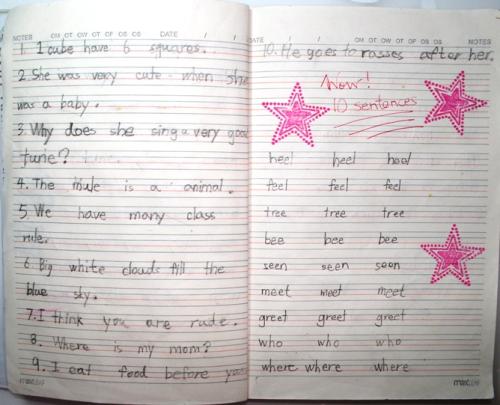 NOTES OM OT OW OT OF OS OS DATE / /
1. 1 cube have 6 squares.
2. She was very cute when she
was a baby.
3. Why does she sing a very good
tune?
4. The mule is a animal.
5. We have many class
rule.
6. Big white clouds fill the
blue sky.
7. I think you are rude.
8. Where is my mom?
9. I eat food before you
max
DATE / / OM OT OW OT OF OS OS NOTES
10. He goes to rosses after her.
Wow!
10 sentences
heel heel heel
feel feel feel
tree tree tree
bee bee bee
seen seen seen
meet meet meet
greet greet greet
who who who
where where where
max